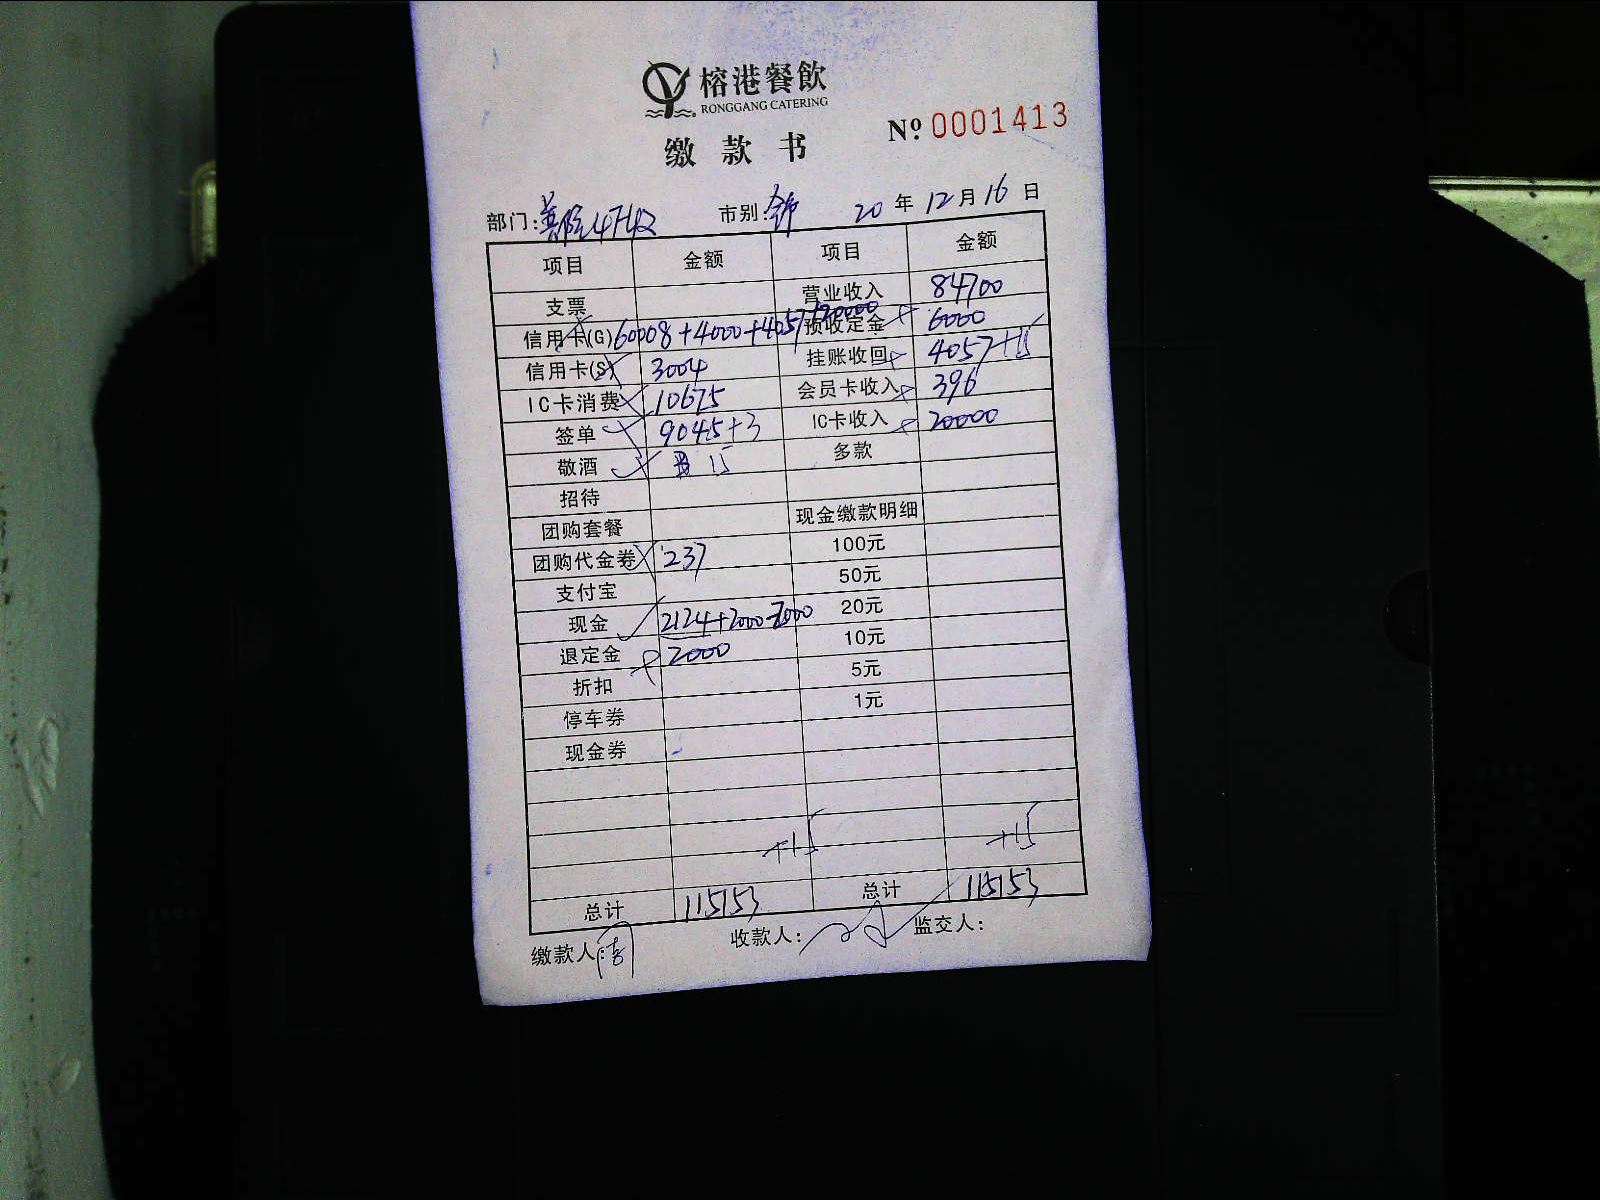 榕港餐飲
RONGGANG CATERING
缴款书 Nº 0001413
部门: 市别: 20 年 12 月 16 日
项目 金额 项目 金额
支票 营业收入 84700
信用卡(G) 60008+4000+4057+20000 预收定金 6000
信用卡(S) 3004 挂账收回 4057+15
IC卡消费 10675 会员卡收入 396
签单 9045+3 IC卡收入 20000
敬酒 15 多款
招待
团购套餐 现金缴款明细
团购代金券 237 100元
支付宝 50元
现金 2124+2000-2000 20元
退定金 2000 10元
折扣 5元
停车券 1元
现金券
+15 +15
总计 115153 总计 115153
缴款人: 收款人: 监交人: